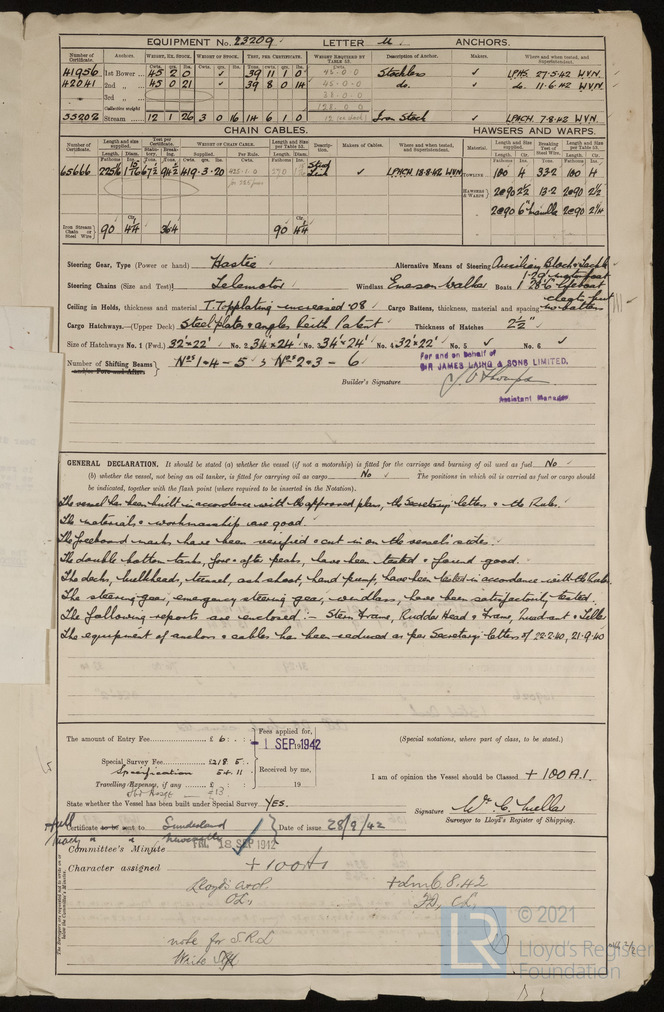 EQUIPMENT No. 23209 LETTER U. ANCHORS.
Number of Certificate. Anchors. WEIGHT, EX. STOCK. WEIGHT OF STOCK. TEST, PER CERTIFICATE. WEIGHT REQUIRED BY TABLE 53. Description of Anchor. Makers. Where and when tested, and Superintendent.
Cwts. qrs. lbs. Cwts. qrs. lbs. Tons. cwts. qrs. lbs. Cwts.
41956 1st Bower 45 2 0 ✓ 39 11 1 0 45-0-0 Stockless ✓ LPHS. 27.5.42 WVN.
42041 2nd " 45 0 21 ✓ 39 8 0 14 45-0-0 do. ✓ do. 11.6.42 WVN.
3rd " 38-0-0
Collective weight 128-0-0
55202 Stream 12 1 26 3 0 16 14 6 1 0 Iron Stock ✓ LPHCH. 7.8.42 WVN.
CHAIN CABLES. HAWSERS AND WARPS.
Number of Certificate. Length and size supplied. Test per Certificate. WEIGHT OF CHAIN CABLE. Length and size per Table 53. Description. Makers of Cables. Where and when tested, and Superintendent. Material. Length and size supplied. Breaking Test of Steel Wire. Length and size per Table 53.
65666 419.3.20 ✓ LPHCH 18.8.42 WVN TOWLINE 180 4 33.2 180 4
HAWSERS & WARPS 2@90 2½ 13.2 2@90 2½
2@90 6" manilla 2@90 2¼
Iron Stream Chain or Steel Wire 90 4¼ 36.4 90 4¼
Steering Gear, Type (Power or hand) Hastie Alternative Means of Steering Auxiliary Block & Tackle
Steering Chains (Size and Test) Telemotor Windlass Emerson Walker Boats 1 28'-6" lifeboat
Ceiling in Holds, thickness and material T.T. plating increased .08 Cargo Battens, thickness, material and spacing no battens
Cargo Hatchways.—(Upper Deck) Steel plates & angles Keith Patent Thickness of Hatches 2½"
Size of Hatchways No. 1 (Fwd.) 32' x 22' No. 2 34 x 24' No. 3 34' x 24' No. 4 32' x 22' No. 5 ✓ No. 6 ✓
Number of Shifting Beams Nos 1 & 4 – 5 ; Nos 2 & 3 – 6
and/or Fore and Afters
For and on behalf of
SIR JAMES LAING & SONS LIMITED.
Builder's Signature
Assistant Manager
GENERAL DECLARATION. It should be stated (a) whether the vessel (if not a motorship) is fitted for the carriage and burning of oil used as fuel No
(b) whether the vessel, not being an oil tanker, is fitted for carrying oil as cargo No The positions in which oil is carried as fuel or cargo should
be indicated, together with the flash point (where required to be inserted in the Notation).
The vessel has been built in accordance with the approved plans, the Secretary's letters & the Rules.
The materials & workmanship are good.
The freeboard marks have been verified & cut in on the vessel's sides.
The double bottom tanks, fore & after peaks, have been tested & found good.
The decks, bulkheads, tunnel, ash shoot, hand pump, have been tested in accordance with the Rules.
The steering gear, emergency steering gear, windlass, have been satisfactorily tested.
The following reports are enclosed:– Stern Frame, Rudder Head & Frame, Quadrant & Tiller
The equipment of anchors & cables has been reduced as per Secretary's letters of 22.2.40, 21.9.40
The amount of Entry Fee £ 6 : : Fees applied for,
- 1 SEP 1942
(Special notations, where part of class, to be stated.)
Special Survey Fee £218 : 5 :
Specification 54 . 11 . Received by me,
Travelling Expenses, if any £ : : 19
I am of opinion the Vessel should be Classed + 100 A.1.
State whether the Vessel has been built under Special Survey YES.
Signature Wm C. Mellar
Surveyor to Lloyd's Register of Shipping.
Certificate to be sent to Sunderland Date of issue 28/9/42
Newcastle
Committee's Minute FRI. 18 SEP 1942
Character assigned + 100A1
Lloyd's A & C.P. + LMC 8.42
CL. FD, CL.
note for S.R.L
The Surveyors are requested not to write on or below the Committee's Minute.
© 2021
LR
Lloyd's Register
Foundation